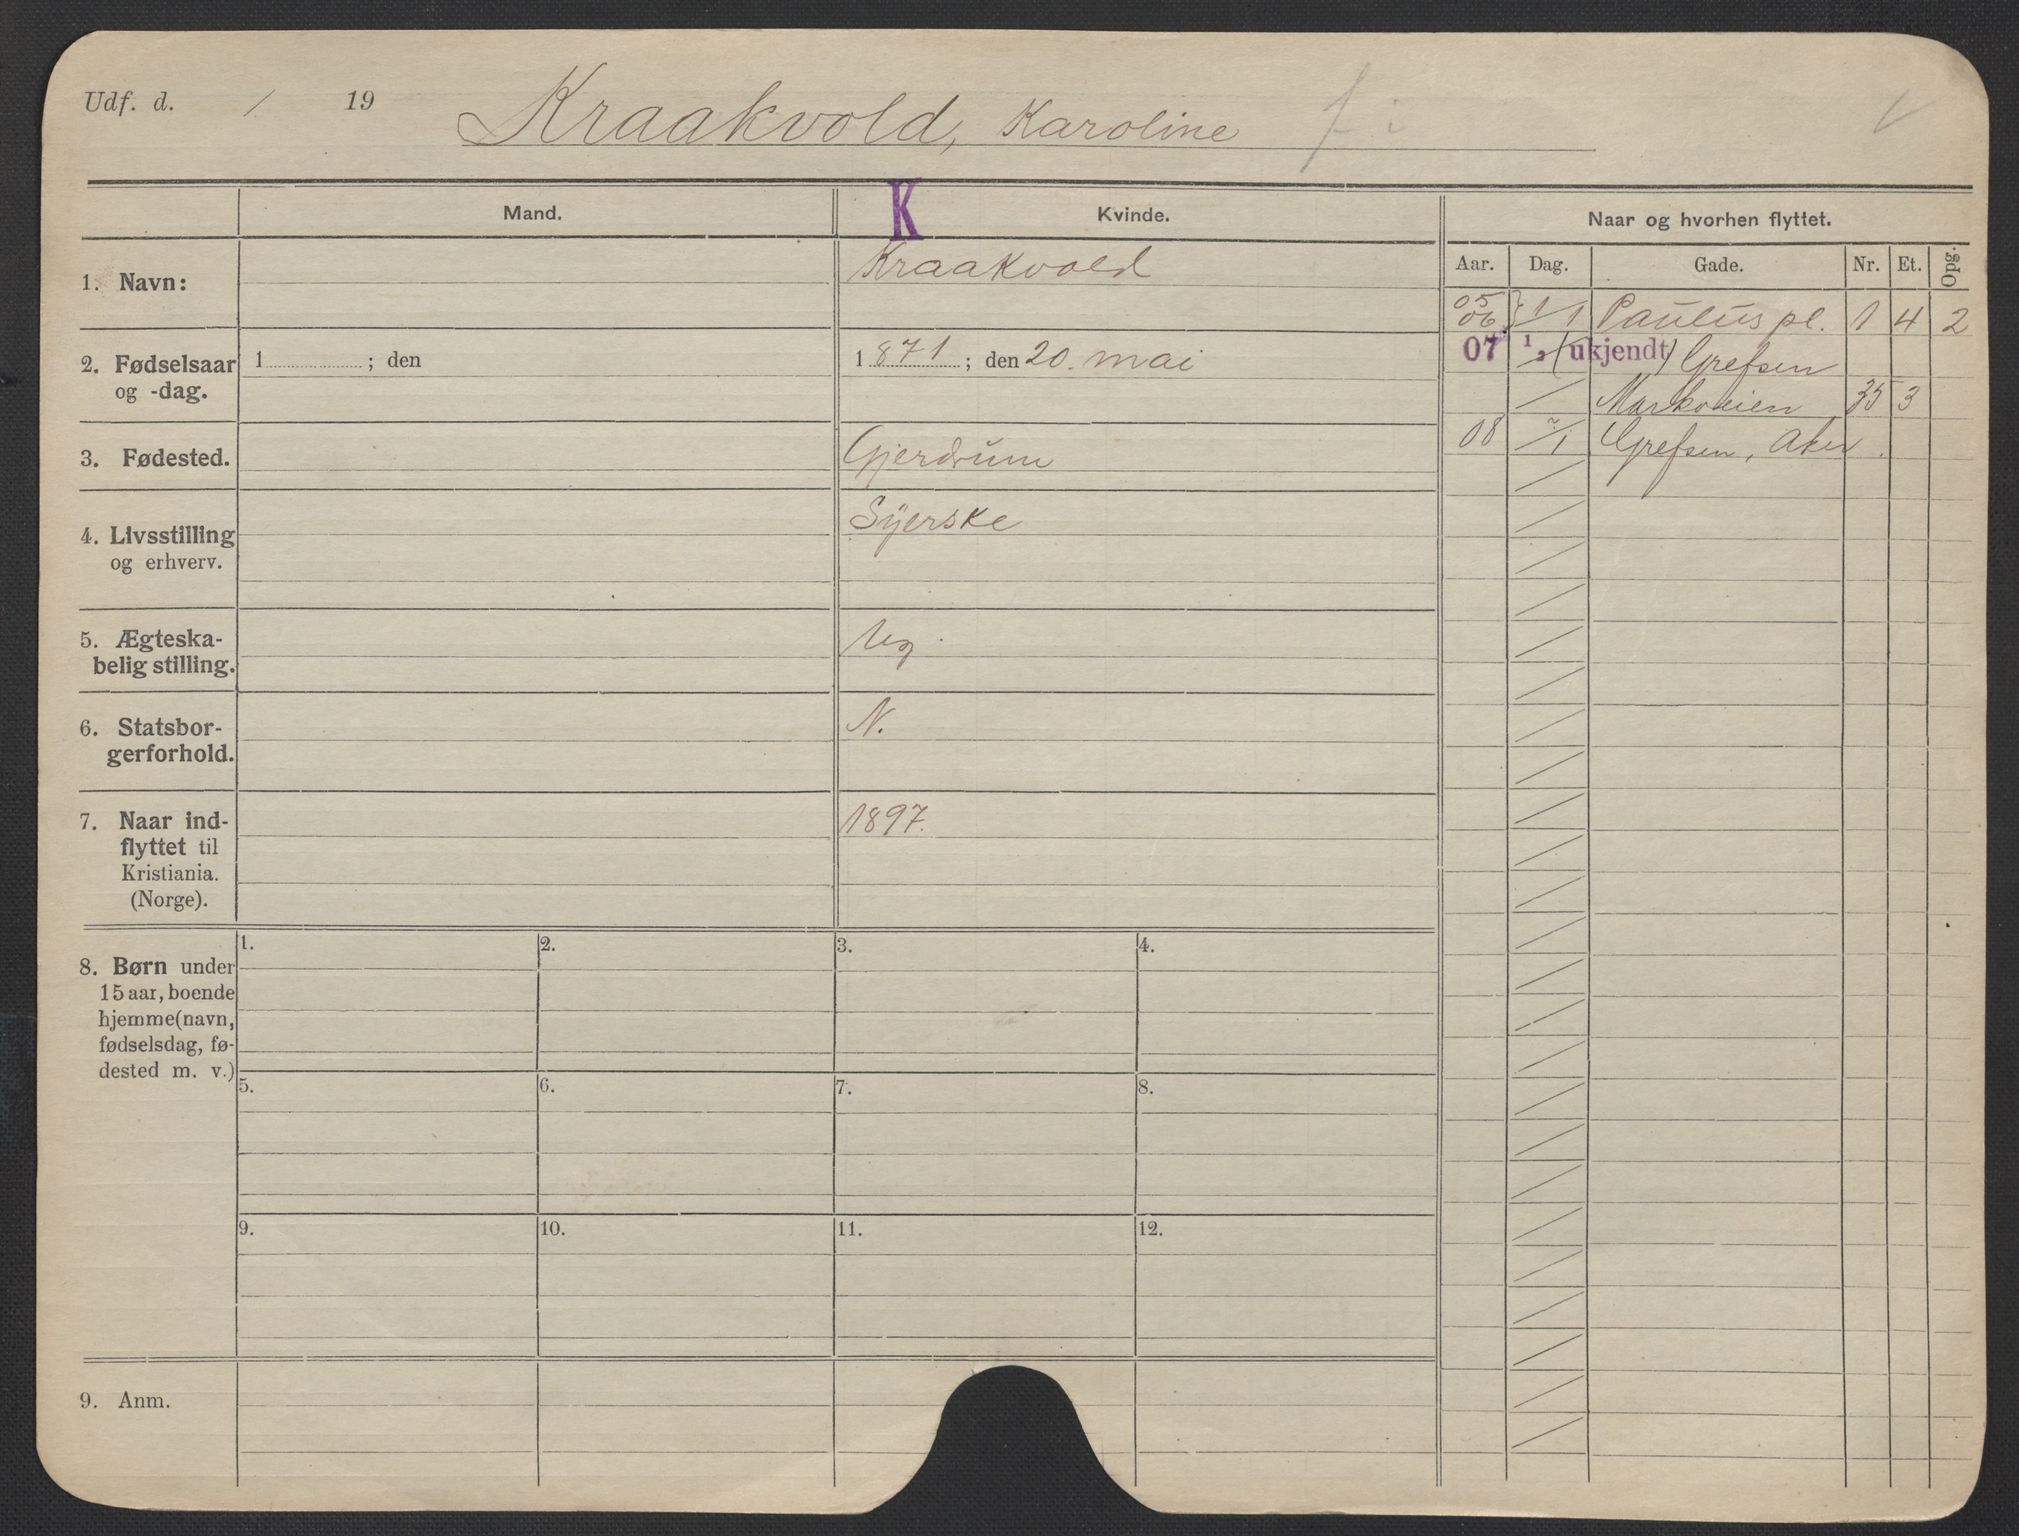 Udf. d. / 19
Kraakvold, Karoline
Mand.
K
Kvinde.
Naar og hvorhen flyttet.
Aar. Dag. Gade. Nr. Et. Opg.
1. Navn:
Kraakvold
2. Fødselsaar
og -dag.
1 ; den
1871; den 20. mai
3. Fødested.
Gjerdrum
4. Livsstilling
og erhverv.
Syerske
5. Ægteska-
belig stilling.
Ug.
6. Statsbor-
gerforhold.
N.
7. Naar ind-
flyttet til
Kristiania.
(Norge).
1897.
8. Børn under
15 aar, boende
hjemme (navn,
fødselsdag, fø-
dested m. v.)
1. 2. 3. 4.
5. 6. 7. 8.
9. 10. 11. 12.
9. Anm.
05
06 } 1/1 Paulus pl. 1 4 2
07 1/ (ukjendt) Grefsen
/ Markveien 35 3
08 /1 Grefsen, Aker.